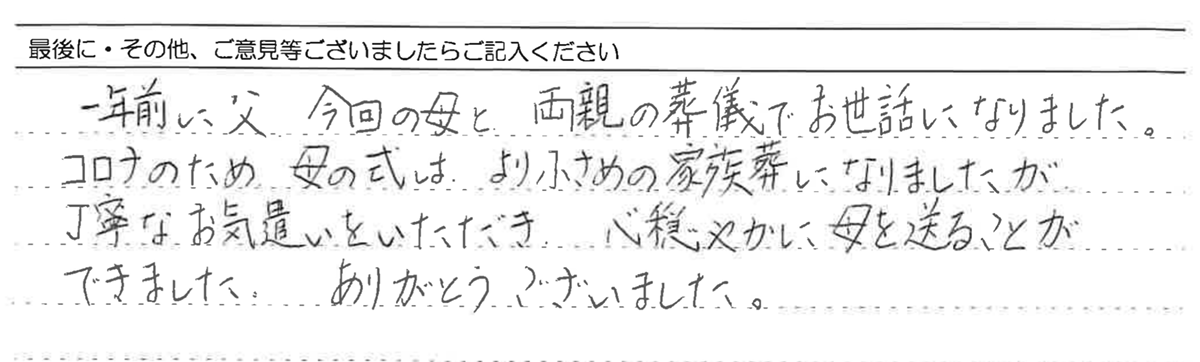 最後に・その他、ご意見等ございましたらご記入ください
一年前に父 今回の母と 両親の葬儀でお世話になりました。
コロナのため 母の式は より小さめの家族葬になりましたが
丁寧なお気遣いをいただき 心穏やかに母を送ることが
できました. ありがとうございました。